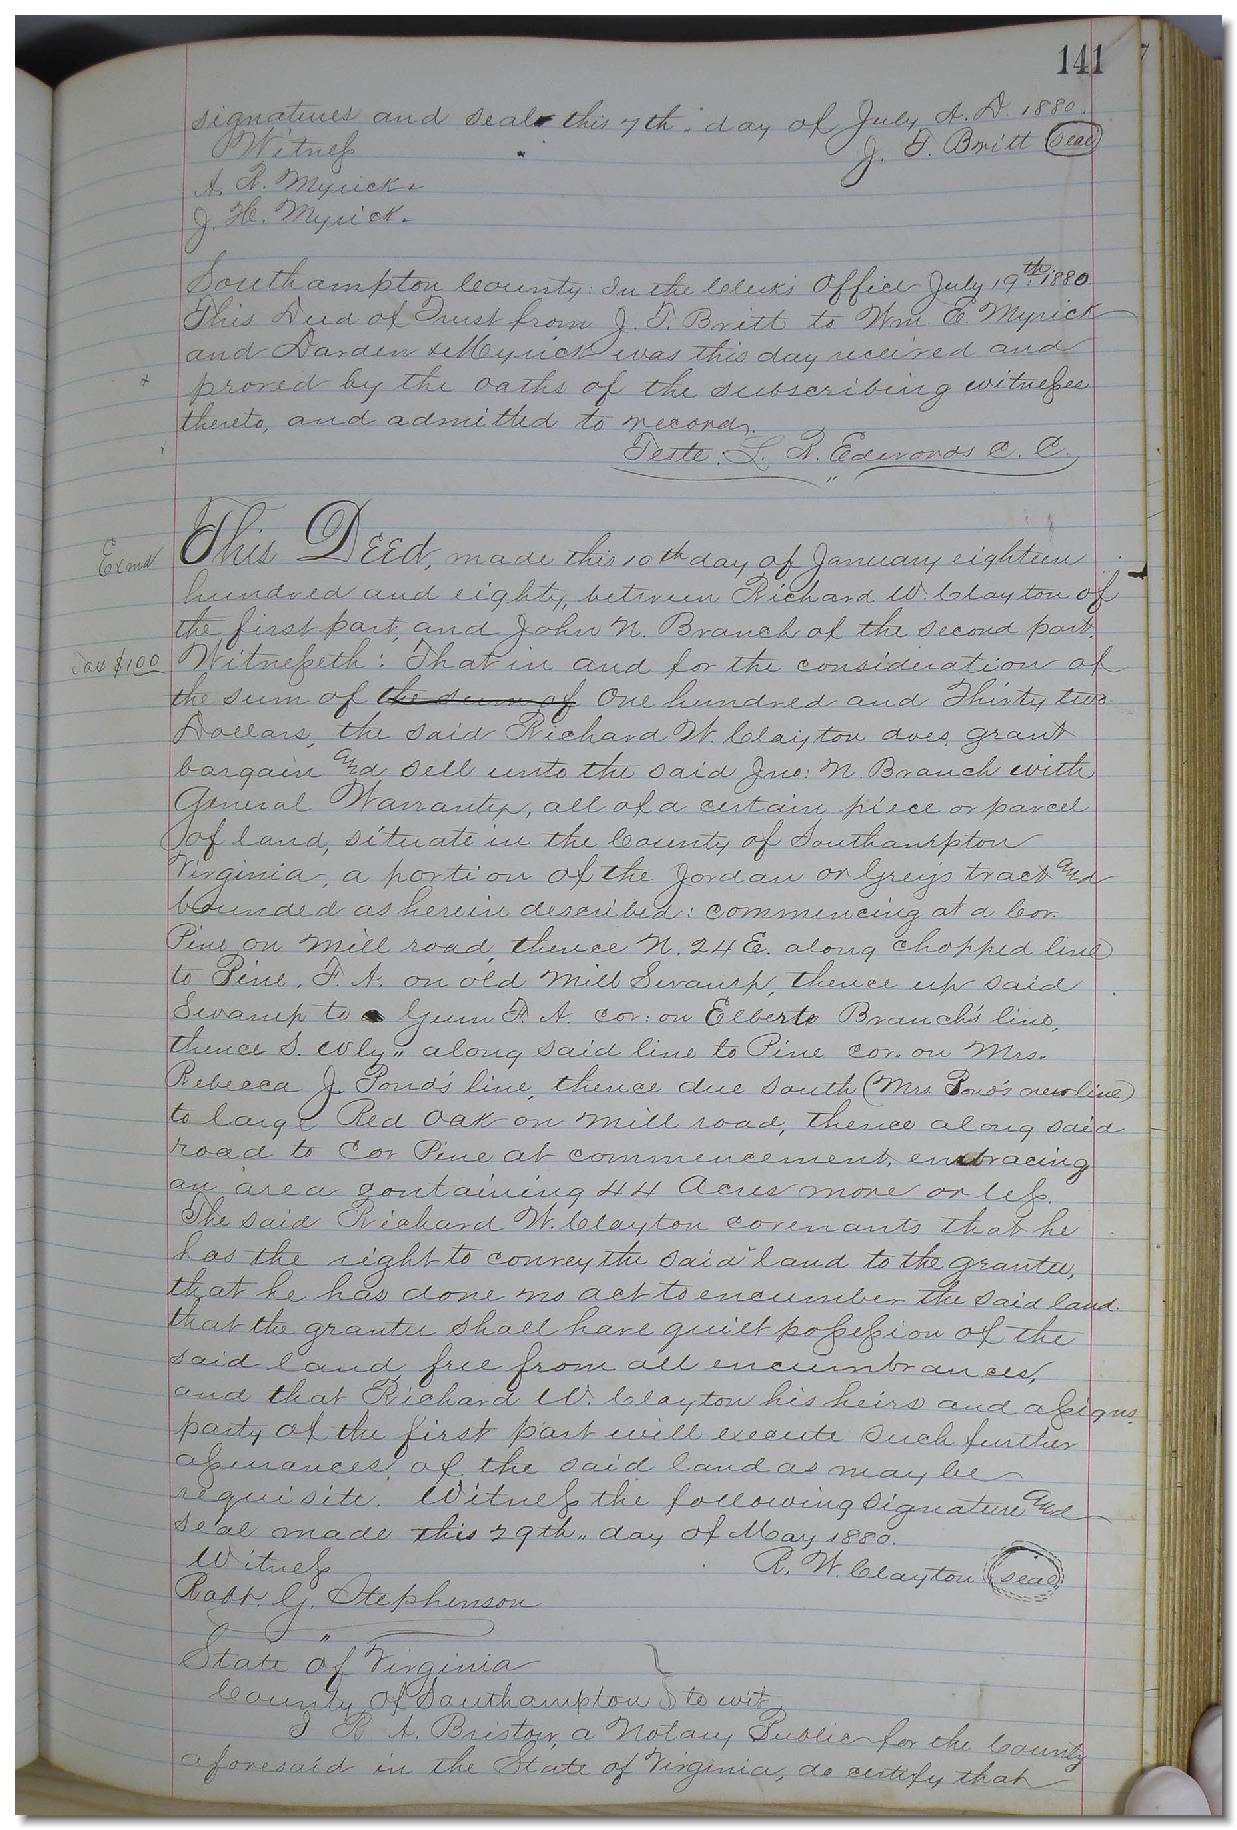 141
signatures and seal this 7th. day of July A. D. 1880.
Witness
J. T. Britt (Seal)
A. R. Myrick.
J. H. Myrick.
Southampton County: In the Clerk's Office July 19th. 1880
This Deed of Trust from J. T. Britt to Wm. E. Myrick
and Darden & Myrick was this day received and
proved by the oaths of the subscribing witnesses
thereto, and admitted to record.
Teste. L. R. Edwards C. C.
Exmd
This Deed, made this 10th day of January eighteen
hundred and eighty, between Richard W. Clayton of
the first part, and John N. Branch of the second part.
Tax $1.00
Witnesseth: That in and for the consideration of
the sum of the sum of One hundred and Thirty two
Dollars, the said Richard W. Clayton does grant
bargain and sell unto the said Jno: N Branch with
General Warranty, all of a certain piece or parcel
of land, situate in the County of Southampton
Virginia, a portion of the Jordan or Greys tract and
bounded as herein described: commencing at a Cor.
Pine on Mill road, thence N. 24 E. along chopped line
to Pine, F. A. on old Mill Swamp, thence up said
Swamp to a Gum F. A. cor: on Elberto Branch's line,
thence S. Wly,, along said line to Pine cor. on Mrs.
Rebecca J. Pond's line, thence due south (Mrs. Pond's new line)
to large Red Oak on Mill road, thence along said
road to Cor Pine at commencement, embracing
an area containing 44 Acres more or less.
The said Richard W. Clayton covenants that he
has the right to convey the said land to the grantee,
that he has done no act to encumber the said land.
that the grantee shall have quiet possession of the
said land, free from all encumbrances,
and that Richard W. Clayton his heirs and assigns
party of the first part will execute such further
assurances, of the said land as may be
requisite. Witness the following signature and
seal made this 29th,, day of May 1880.
Witness
R. W. Clayton (Seal)
Robt. G. Stephenson
State of Virginia
County of Southampton } to wit,
I R. A. Bristow, a Notary Public for the County
aforesaid in the State of Virginia, do certify that